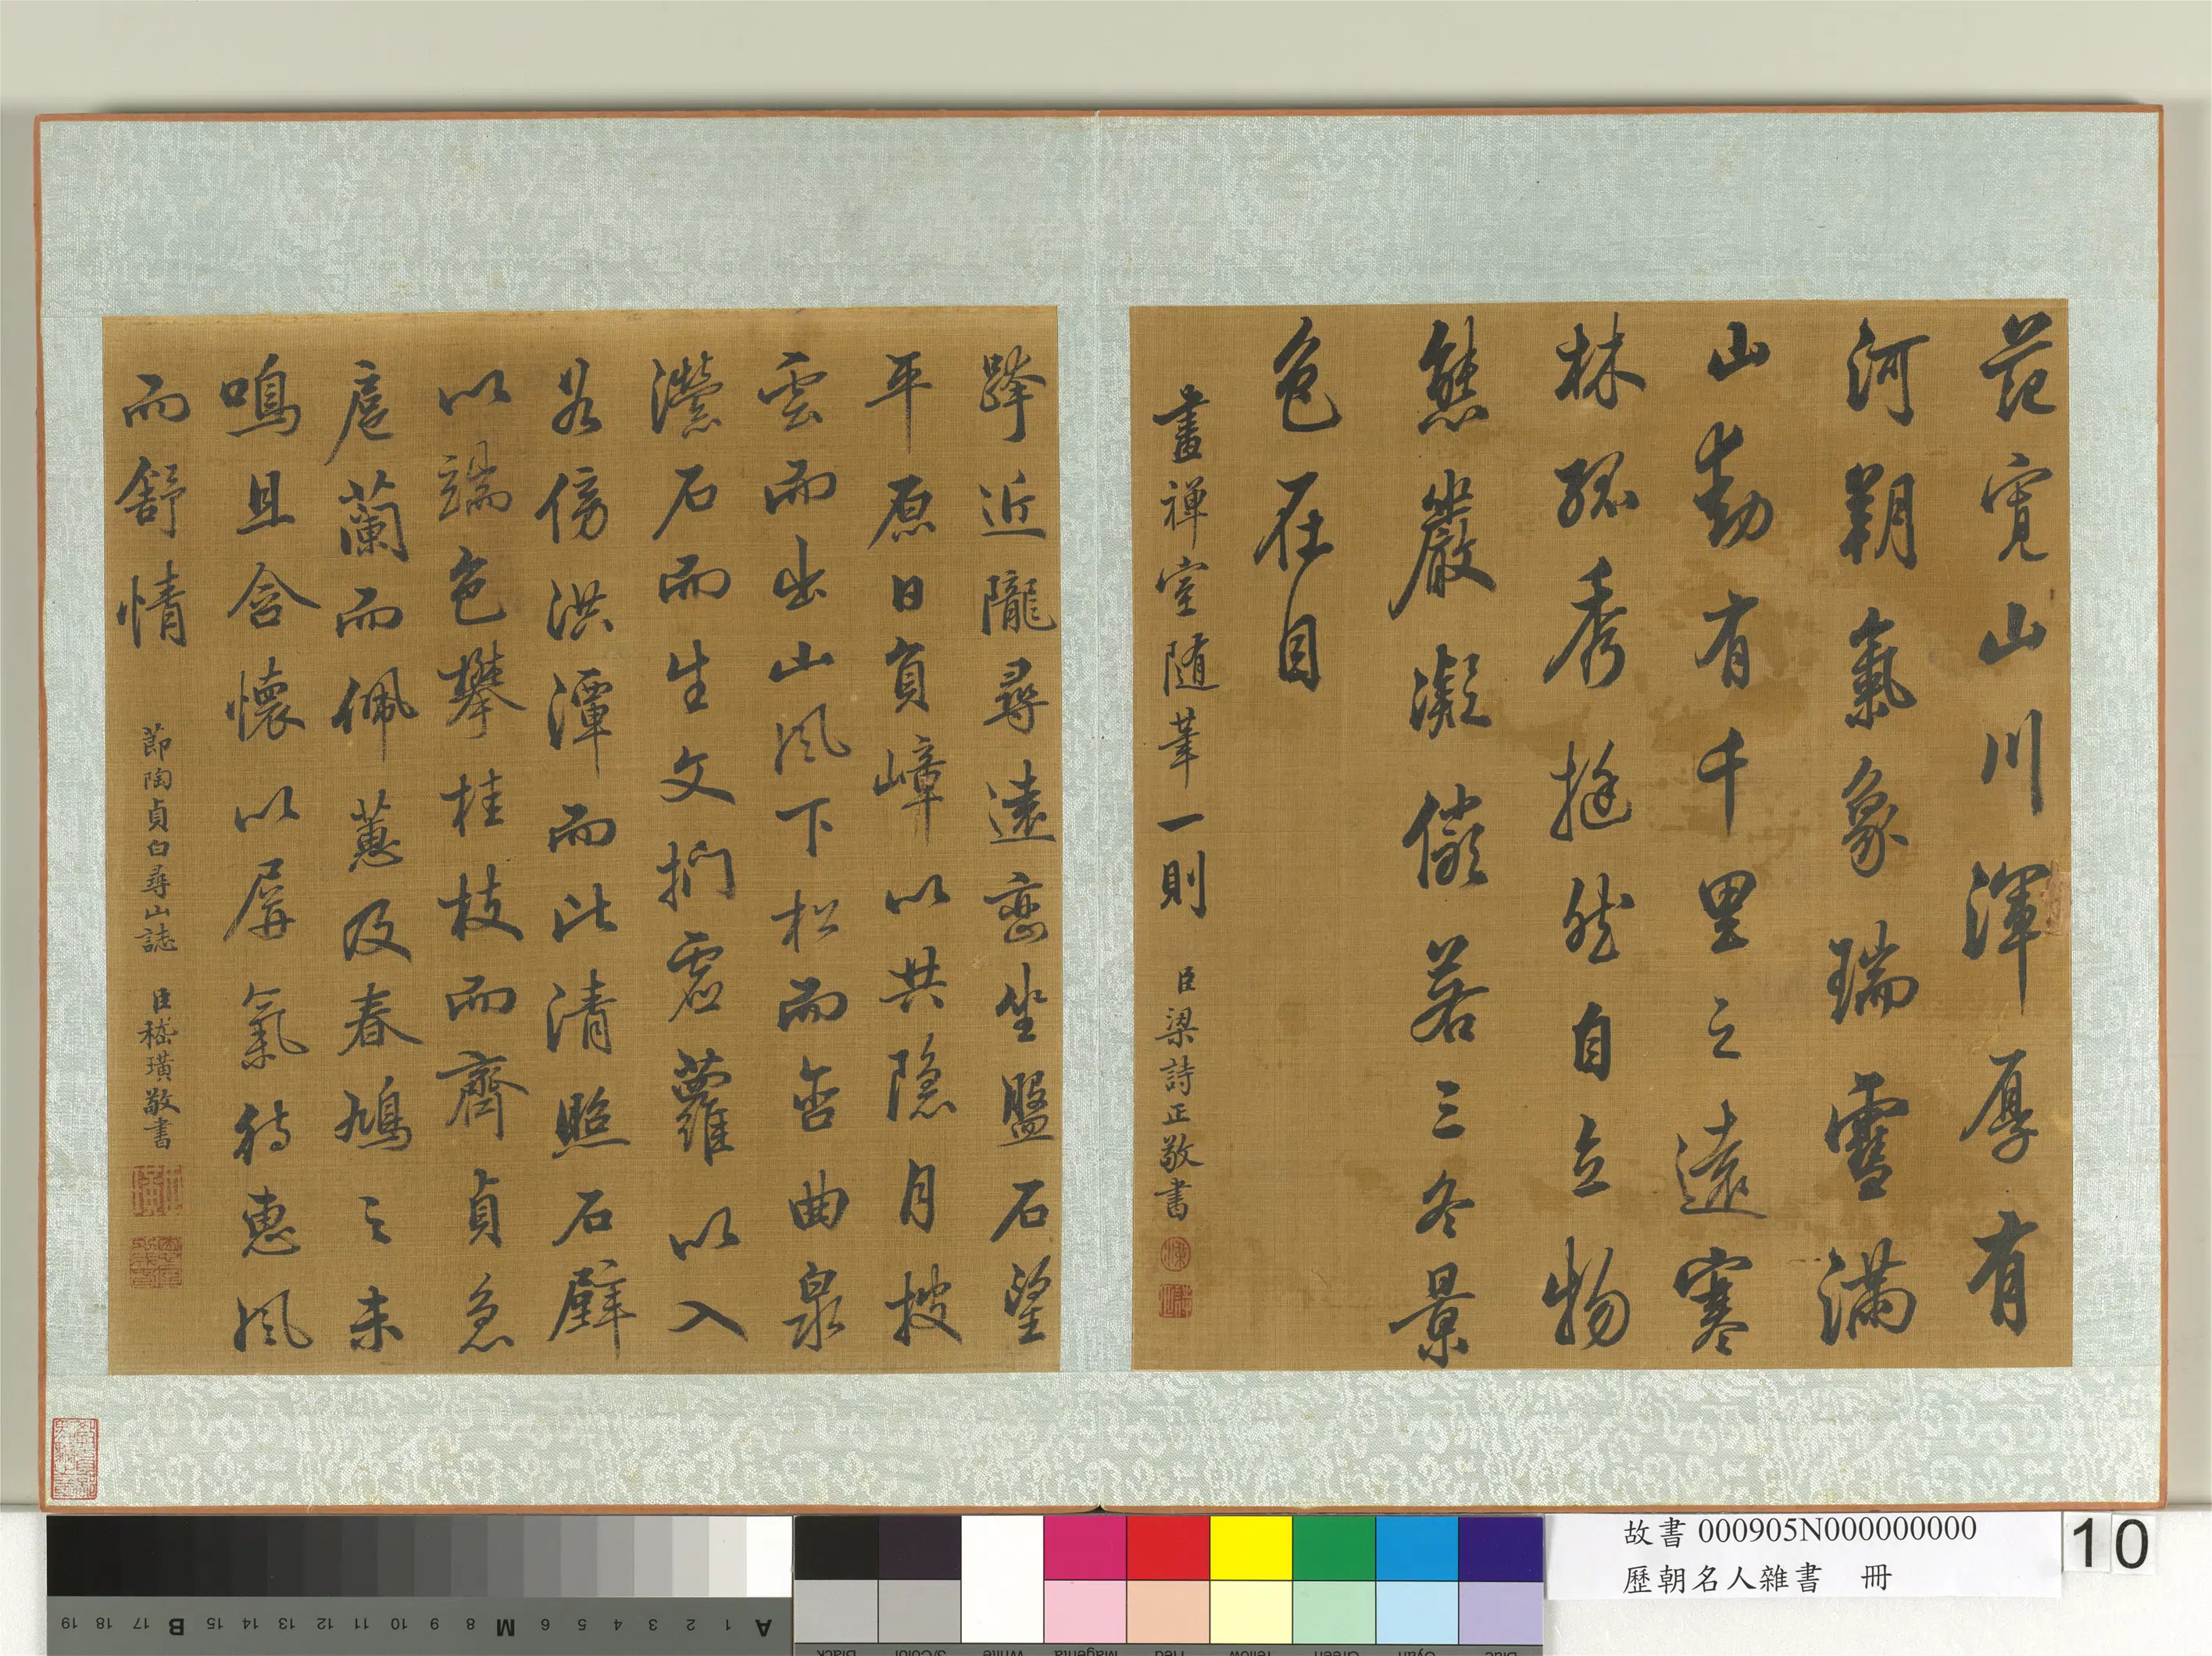 范寬山川渾厚有
河朔氣象瑞雪滿
山動有千里之遠寒
林孤秀挺然自立物
態嚴凝儼若三冬景
色在目
畫禪室隨筆一則 臣梁詩正敬書
蹐近隴尋遠巒坐盤石望
平原日負嶂以共隱月披
雲而出山風下松而含曲泉
瀠石而生文捫虛蘿以入
谷傍洪潭而比清照石壁
以端色攀桂枝而齊貞急
扈蘭而佩蕙及春鳩之未
鳴且含懷以屏氣待惠風
而舒情
節陶貞白尋山誌 臣嵇璜敬書
故書 000905N000000000
歷朝名人雜書 冊
10
A 1 2 3 4 5 6 M 8 9 10 11 12 13 14 15 B 17 18 19
Black 3/Color White Magenta Red Yellow Green Cyan Blue